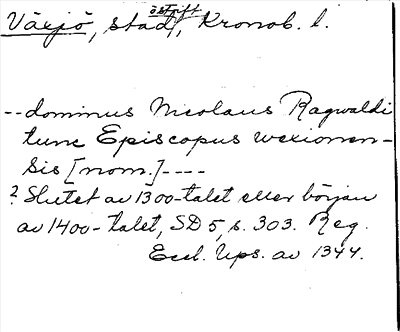 östift
Växjö, stad, Kronob. l.
-- dominus Nicolaus Ragwaldi
tunc Episcopus wexionen-
sis [nom.] ----
? Slutet av 1300-talet eller början
av 1400-talet, SD 5, s. 303. Reg.
Eccl. Ups. av 1344.